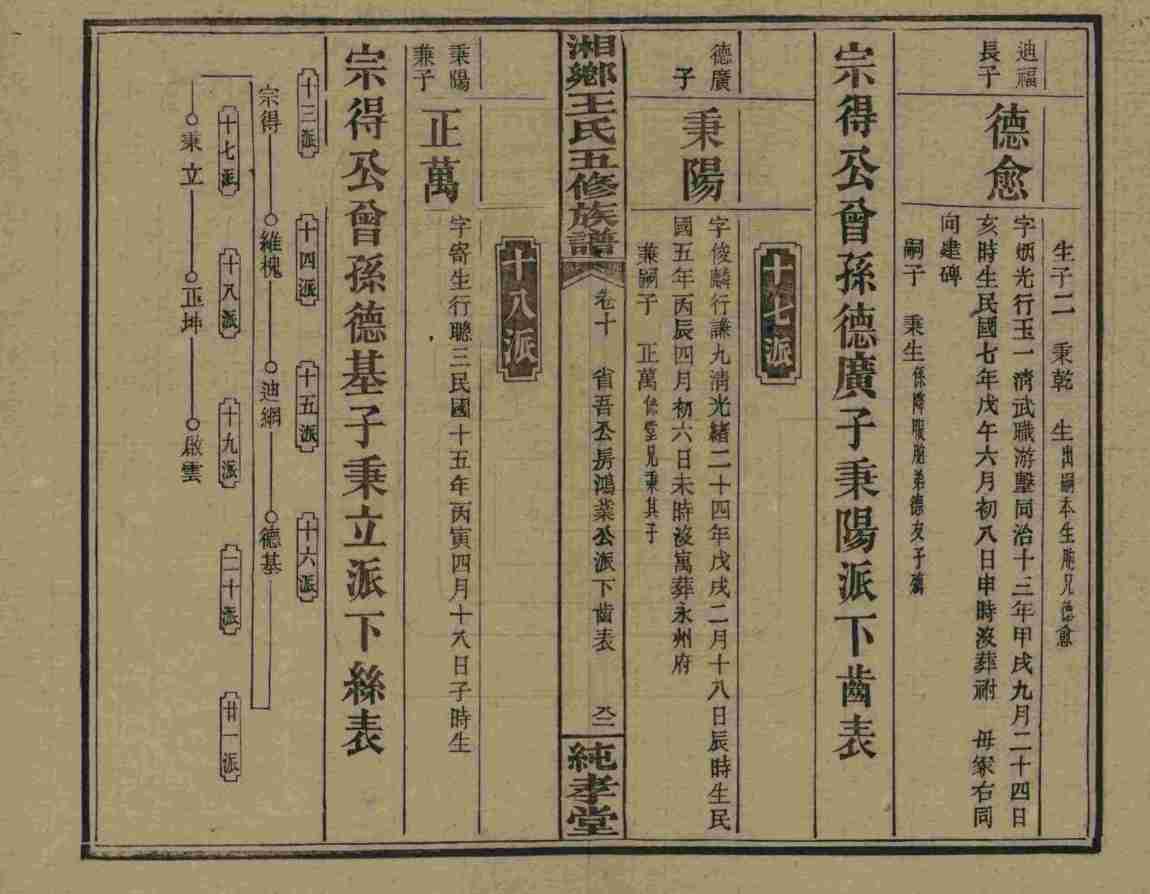 生子二　秉乾　生出嗣本生胞兄德愈
迪福
長子
德愈
字炳光行玉一清武職游擊同治十三年甲戌九月二十四日
亥時生民國七年戊午六月初八日申時沒葬祔　母冢右同
向建碑
嗣子　秉生係降服胞弟德友子
宗得公曾孫德廣子秉陽派下齒表
十七派
德廣
子
秉陽
字俊麟行謙九清光緒二十四年戊戌二月十八日辰時生民
國五年丙辰四月初六日未時沒寓葬永州府
兼嗣子　正萬係堂兄秉其子
湘鄉王氏五修族譜
卷十　省吾公房鴻業公派下齒表
純孝堂
十八派
秉陽
兼子
正萬
字寄生行聰三民國十五年丙寅四月十八日子時生
宗得公曾孫德基子秉立派下絲表
十三派　十四派　十五派　十六派
宗得　維槐　迪綱　德基
十七派　十八派　十九派　二十派　廿一派
秉立　正坤　啟雲